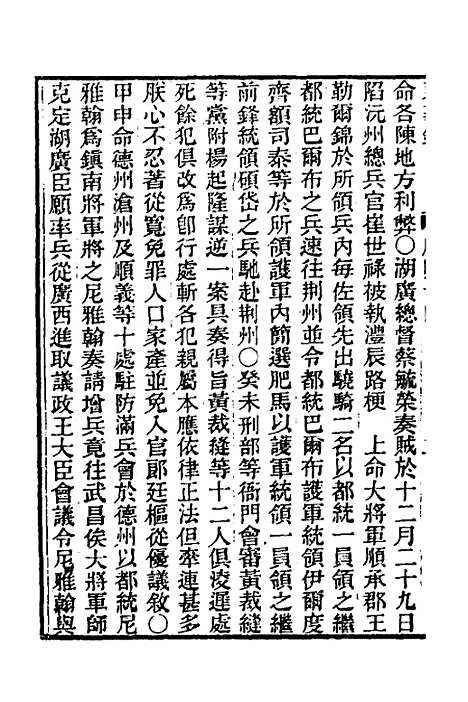 命各陳地方利弊〇湖廣總督蔡毓榮奏賊於十二月二十九日
陷沅州總兵官崔世祿被執澧辰路梗　上命大將軍順承郡王
勒爾錦於所領兵內每佐領先出驍騎二名以都統一員領之繼
都統巴爾布之兵速往荆州並令都統巴爾布護軍統領伊爾度
齊額司泰等於所領護軍內簡選肥馬以護軍統領一員領之繼
前鋒統領碩岱之兵馳赴荆州〇癸未刑部等衙門會審黃裁縫
等黨附楊起隆謀逆一案具奏得旨黃裁縫等十二人俱凌遲處
死餘犯俱改爲卽行處斬各犯親屬本應依律正法但牽連甚多
朕心不忍著從寬免罪人口家產並免入官郞廷樞從優議敘〇
甲申命德州滄州及順義等十處駐防滿兵會於德州以都統尼
雅翰爲鎮南將軍將之尼雅翰奏請增兵竟往武昌俟大將軍師
克定湖廣臣願率兵從廣西進取議政王大臣會議令尼雅翰與